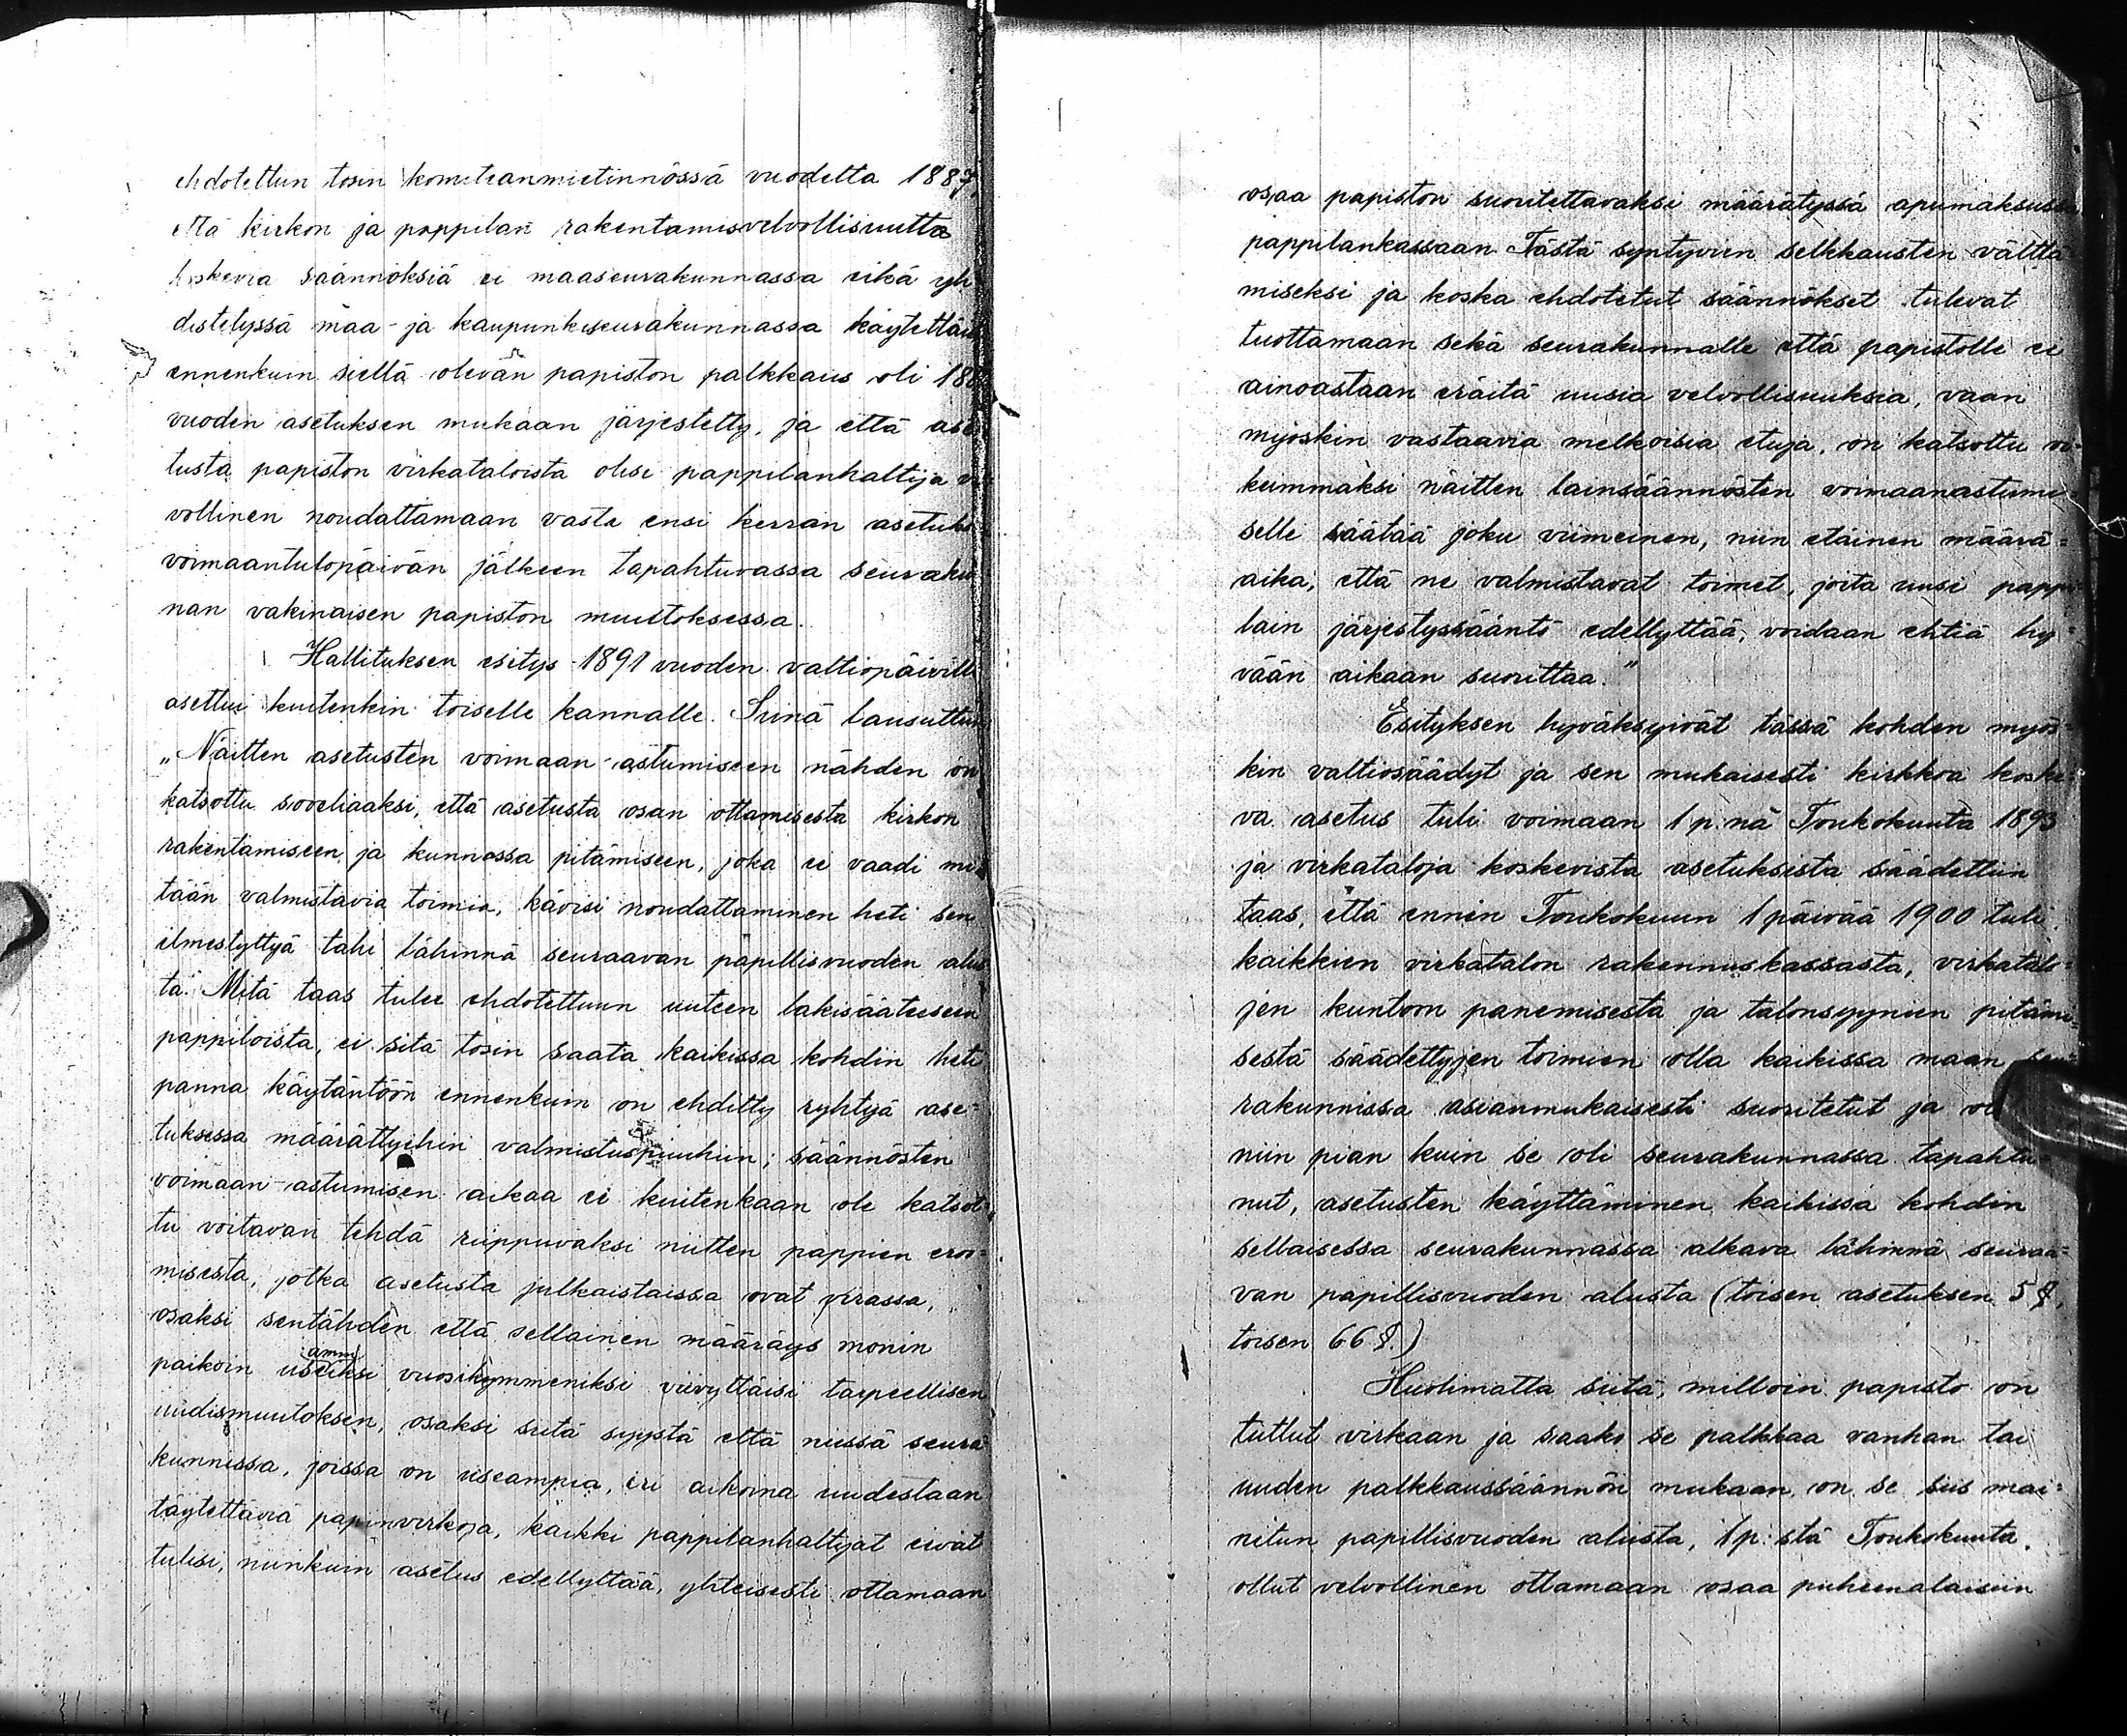 ehdotettun tosin komiteanmietinnössä vuodelta 1887,
että kirkon ja pappilan rakentamisvelvollisuutta
koskevia säännöksiä ei maaseurakunnassa eikä yh
distetyssä maa- ja kaupunkiseurakunnassa käytettäisi
ennenkuin siellä olevan papiston palkkaus oli 188
vuoden asetuksen mukaan järjestetty, ja että ase
tusta papiston virkataloista olisi pappilanhaltija vel
vollinen noudattamaan vasta ensi kerran asetuks
voimaantulopäivän jälkeen tapahtuvassa seuraku
nan vakinaisen papiston muutoksessa.
Hallituksen esitys 1891 vuoden valtiopäiville
asettui kuitenkin toiselle kannalle. Siinä lausuttiin
„Näitten asetusten voimaan-astumiseen nähden on
katsottu soveliaaksi, että asetusta osan ottamisesta kirkon
rakentamiseen ja kunnossa pitämiseen, joka ei vaadi mi
tään valmistavia toimia, kävisi noudattaminen heti sen
ilmestyttyä tahi lähinnä seuraavan papillisvuoden alus
ta. Mitä taas tulee ehdotettuun uuteen lakisääteeseen
pappiloista, ei sitä tosin saata kaikissa kohdin heti
panna käytäntöön ennenkuin on ehditty ryhtyä ase=
tuksessa määrättyihin valmistuspuuhiin; säännösten
voimaan-astumisen aikaa ei kuitenkaan ole katsot=
tu voitavan tehdä riippuvaksi niitten pappien eroa=
misesta, jotka asetusta julkaistaissa ovat virassa,
osaksi sentähden että sellainen määräys monin
paikoin useammiksi vuosikymmeniksi viivyttäisi tarpeellisen
uudismuutoksen, osaksi siitä syystä että niissä seura
kunnissa, joissa on useampia, eri aikoina uudestaan
täytettäviä papinvirkoja, kaikki pappilanhaltijat eivät
tulisi, niinkuin asetus edellyttää, yhteisesti ottamaan
osaa papiston suoritettavaksi määrätyssä apumaksussa
pappilankassaan. Tästä syntyvien selkkausten välttä
miseksi ja koska ehdotetut säännökset tulevat
tuottamaan sekä seurakunnalle että papistolle ei
ainoastaan eräitä uusia velvollisuuksia, vaan
myöskin vastaavia melkoisia etuja, on katsottu oi=
keimmaksi näitten lainsäännösten voimaanastumi=
selle säätää joku viimeinen, niin etäinen määrä=
aika, että ne valmistavat toimet, joita uusi pappi
lain järjestyssääntö edellyttää, voidaan ehtiä hy=
vään aikaan suorittaa."
Esityksen hyväksyivät tässä kohden myös=
kin valtiosäädyt ja sen mukaisesti kirkkoa koske=
va asetus tuli voimaan 1 p:nä Toukokuuta 1893
ja virkataloja koskevista asetuksista säädettiin
taas, että ennen Toukokuun 1 päivää 1900 tuli
kaikkien virkatalon rakennuskassasta, virkatalo=
jen kuntoon panemisesta ja talonsyynien pitämi=
sestä säädettyjen toimien olla kaikissa maan seu=
rakunnissa asianmukaisesti suoritetut ja
niin pian kuin se oli seurakunnassa tapahtu=
nut, asetusten käyttäminen kaikissa kohdin
sellaisessa seurakunnassa alkava lähinnä seuraa=
van papillisvuoden alusta (toisen asetuksen 5 §,
toisen 66 §.)
Huolimatta siitä, milloin papisto on
tullut virkaan ja saako se palkkaa vanhan tai
uuden palkkaussäännön mukaan, on se siis mai=
nitun papillisvuoden alusta, 1 p:stä Toukokuuta.
ollut velvollinen ottamaan osaa puheenalaisiin